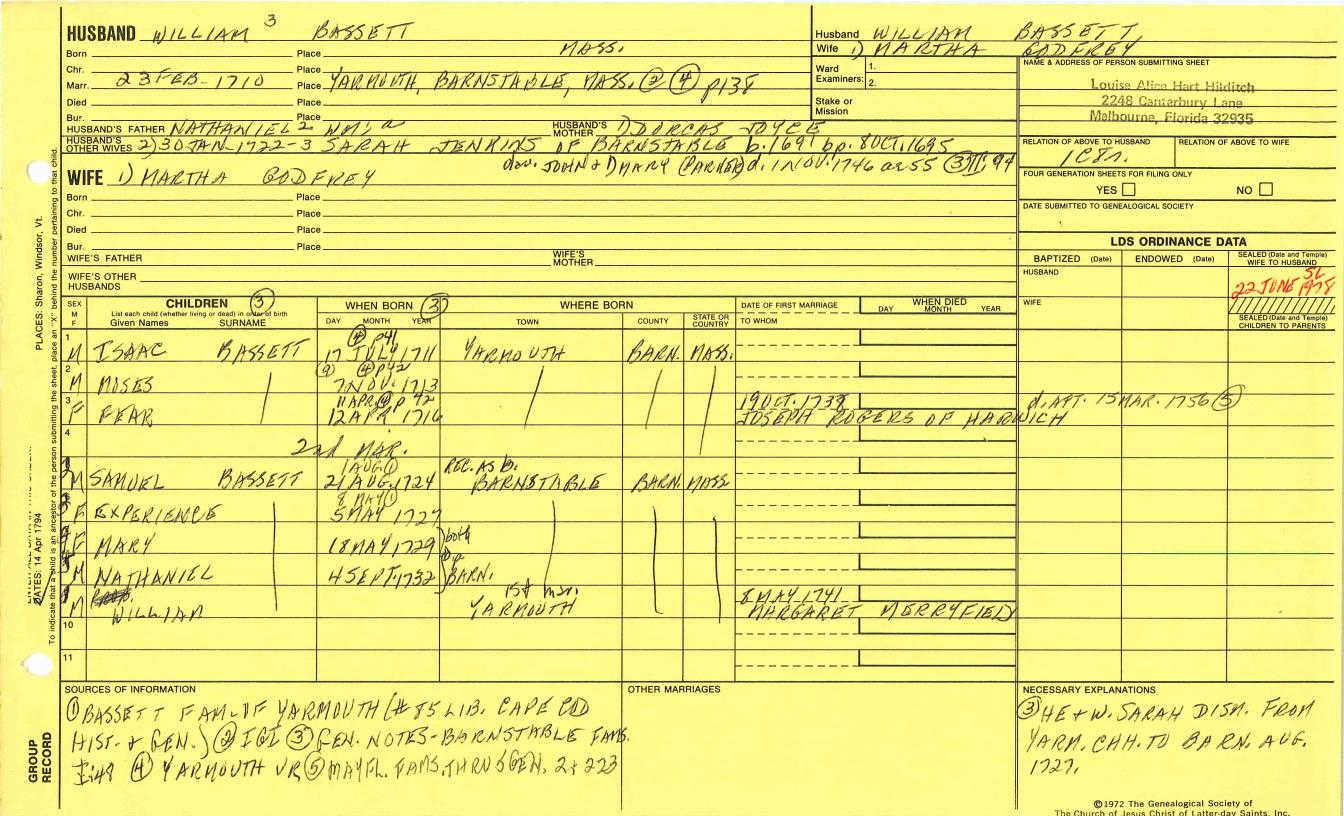 HUSBAND WILLIAM 3 BASSETT
Born Place MASS.
Chr. Place
Marr. 23 FEB- 1710 Place YARMOUTH, BARNSTABLE, MASS. ② ④ p138
Died Place
Bur. Place
HUSBAND'S FATHER NATHANIEL 2 WM; HUSBAND'S MOTHER DORCAS JOYCE
HUSBAND'S OTHER WIVES 2) 30 JAN-1722-3 SARAH JENKINS OF BARNSTABLE b. 1691 bp. 8 OCT. 1695
dau. JOHN & MARY (PARKER) d. 1 NOV. 1746 ae 55 ③ II; 94
Husband WILLIAM BASSETT,
Wife 1) MARTHA GODFREY
Ward Examiners: 1.
2.
Stake or Mission
NAME & ADDRESS OF PERSON SUBMITTING SHEET
Louise Alice Hart Hilditch
2248 Canterbury Lane
Melbourne, Florida 32935
RELATION OF ABOVE TO HUSBAND RELATION OF ABOVE TO WIFE
FOUR GENERATION SHEETS FOR FILING ONLY
YES NO
DATE SUBMITTED TO GENEALOGICAL SOCIETY
WIFE 1) MARTHA GODFREY
Born Place
Chr. Place
Died Place
Bur. Place
WIFE'S FATHER WIFE'S MOTHER
WIFE'S OTHER HUSBANDS
LDS ORDINANCE DATA
BAPTIZED (Date) ENDOWED (Date) SEALED (Date and Temple) WIFE TO HUSBAND
HUSBAND SL
22 JUNE 1978
WIFE
SEALED (Date and Temple) CHILDREN TO PARENTS
SEX M F
CHILDREN ③
List each child (whether living or dead) in order of birth
Given Names SURNAME
WHEN BORN ③
DAY MONTH YEAR
WHERE BORN
TOWN COUNTY STATE OR COUNTRY
DATE OF FIRST MARRIAGE
TO WHOM
WHEN DIED
DAY MONTH YEAR
④ p41
1 M ISAAC BASSETT 17 JULY 1711 YARMOUTH BARN. MASS.
④ p42
2 M MOSES 7 NOV. 1713
11 APR. ④ p 42 19 OCT. 1738 d. AFT. 15 MAR. 1756 ⑤
3 F FEAR 12 APR 1716 JOSEPH ROGERS OF HARWICH
4
2nd MAR.
1 AUG ① REC. AS b.
M SAMUEL BASSETT 21 AUG. 1724 BARNSTABLE BARN. MASS
8 MAY ①
F EXPERIENCE 5 MAY 1727
F MARY 18 MAY 1729 both
bp
M NATHANIEL 4 SEPT. 1732 BARN.
1st mar. 8 MAY 1741
M WILLIAM YARMOUTH MARGARET MERRYFIELD
10
11
SOURCES OF INFORMATION
① BASSETT FAM. OF YARMOUTH (# 85 LIB. CAPE COD
HIST. & GEN.) ② IGI ③ GEN. NOTES-BARNSTABLE FAMS.
I:48 ④ YARMOUTH VR ⑤ MAYFL. FAMS. THRU 5 GEN. 2: 223
OTHER MARRIAGES
NECESSARY EXPLANATIONS
③ HE & W. SARAH DISM. FROM
YARM. CHH. TO BARN. AUG.
1727.
©1972 The Genealogical Society of
The Church of Jesus Christ of Latter-day Saints, Inc.
GROUP RECORD
DATES: 14 Apr 1794
PLACES: Sharon, Windsor, Vt.
To indicate that a child is an ancestor of the person submitting the sheet, place an "X" behind the number pertaining to that child.